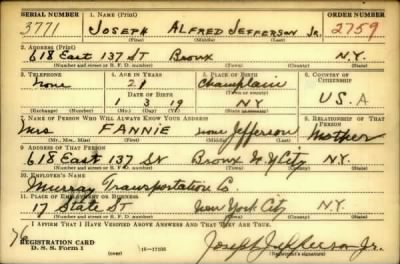 SERIAL NUMBER 1. NAME (Print) ORDER NUMBER
3771 JOSEPH ALFRED JEFFERSON Jr. 2759
(First) (Middle) (Last)
2. ADDRESS (Print)
618 East 137 ST Bronx N.Y.
(Number and street or R. F. D. number) (Town) (County) (State)
3. TELEPHONE 4. AGE IN YEARS 5. PLACE OF BIRTH 6. COUNTRY OF CITIZENSHIP
None 21 Champlain
DATE OF BIRTH
1 3 19 NY U.S.A
(Exchange) (Number) (Mo.) (Day) (Yr.) (State or country)
7. NAME OF PERSON WHO WILL ALWAYS KNOW YOUR ADDRESS 8. RELATIONSHIP OF THAT PERSON
Mrs FANNIE none Jefferson Mother
(Mr., Mrs., Miss) (First) (Middle) (Last)
9. ADDRESS OF THAT PERSON
618 East 137 St Bronx N.Y City N.Y.
(Number and street or R. F. D. number) (Town) (County) (State)
10. EMPLOYER'S NAME
Murray Transportation Co.
11. PLACE OF EMPLOYMENT OR BUSINESS
17 State ST New York City N.Y.
(Number and street or R. F. D. number) (Town) (County) (State)
I AFFIRM THAT I HAVE VERIFIED ABOVE ANSWERS AND THAT THEY ARE TRUE.
76
REGISTRATION CARD
D. S. S. Form 1 (over) Joseph Jefferson Jr.
(Registrant's signature)